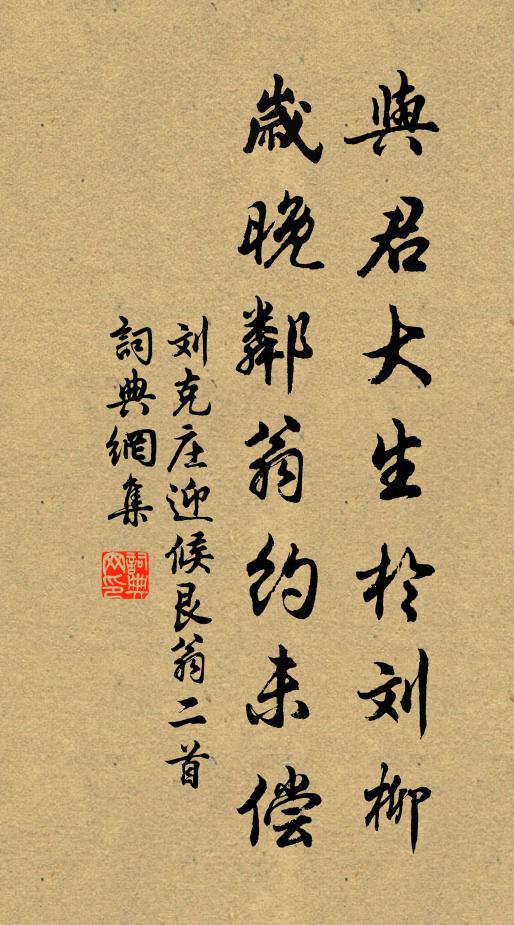 與君大生於刘柳
歲晚鄰翁約未偿
刘克庄迎候艮翁二首
詞典網集
詞典网印